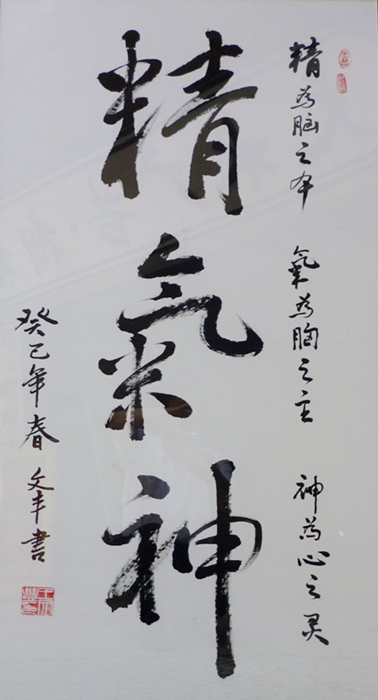 精為脑之本 氣為胸之主 神為心之灵
精氣神
癸巳年春 文丰書